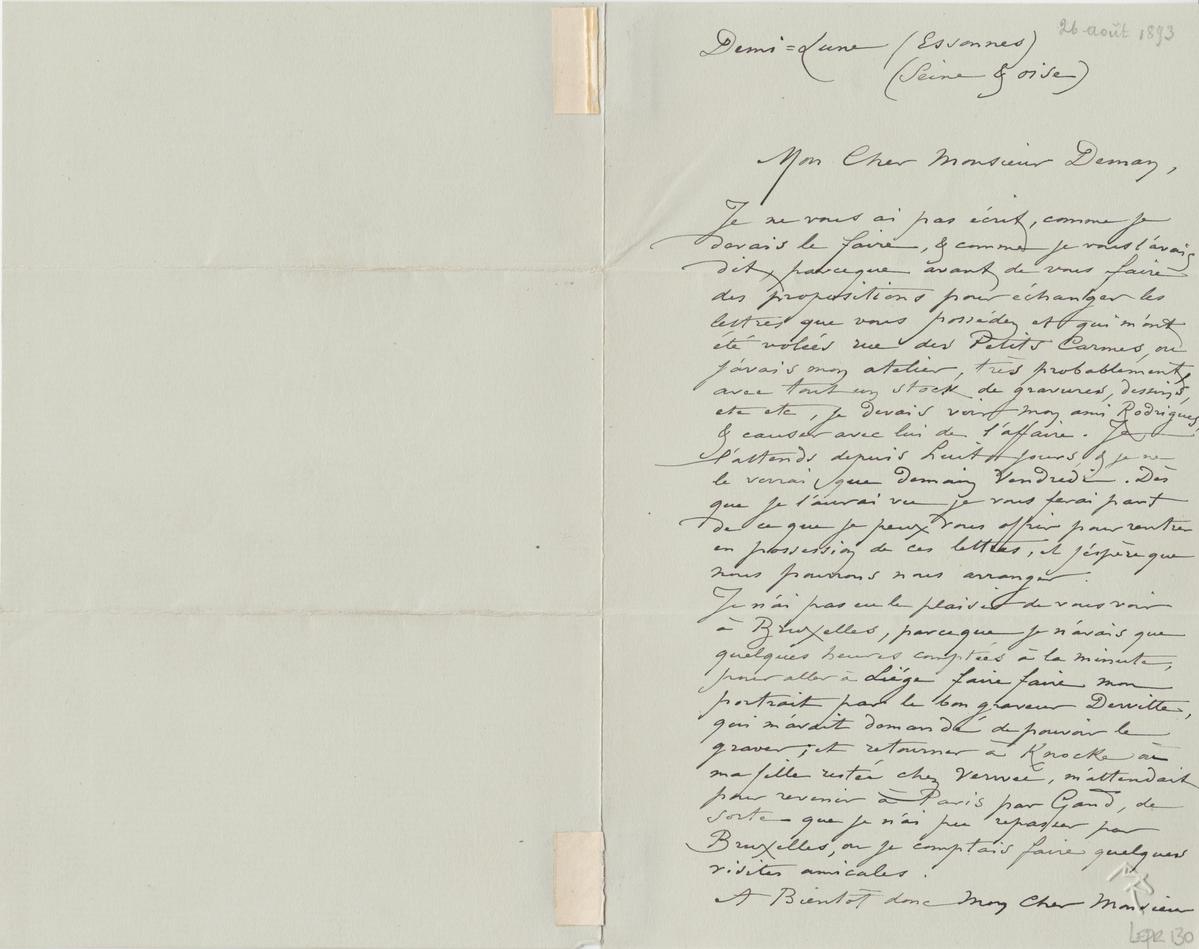 26 août 1893
Demi=Lune (Essonnes)
(Seine & oise)
Mon Cher Monsieur Deman,
Je ne vous ai pas écrit, comme je
devais le faire, & comme je vous l'avais
dit, parceque avant de vous faire
des propositions pour échanger les
lettres que vous possédez et qui m'ont
été volées rue des Petits Carmes, où
j'avais mon atelier, très probablement
avec tout un stock de gravures, dessins,
etc etc, je devais voir mon ami Rodrigues,
& causer avec lui de l'affaire. Je
l'attends depuis huit jours & je ne
le verrai que demain Vendredi. Dès
que je l'aurai vu je vous ferai part
de ce que je peux vous offrir pour rentrer
en possession de ces lettres, et j'éspère que
nous pourrons nous arranger.
Je n'ai pas eu le plaisir de vous voir
à Bruxelles, parceque je n'avais que
quelques heures comptées à la minute,
pour aller à Liége faire faire mon
portrait par le bon graveur Dewitte,
qui m'avait demandé de pouvoir le
graver; et retourner à Knocke où
ma fille restée chez Verwée, m'attendait
pour revenir à Paris par Gand, de
sorte que je n'ai pu repasser par
Bruxelles, ou je comptais faire quelques
visites amicales.
A Bientôt donc Mon Cher Monsieur
LEpr 130